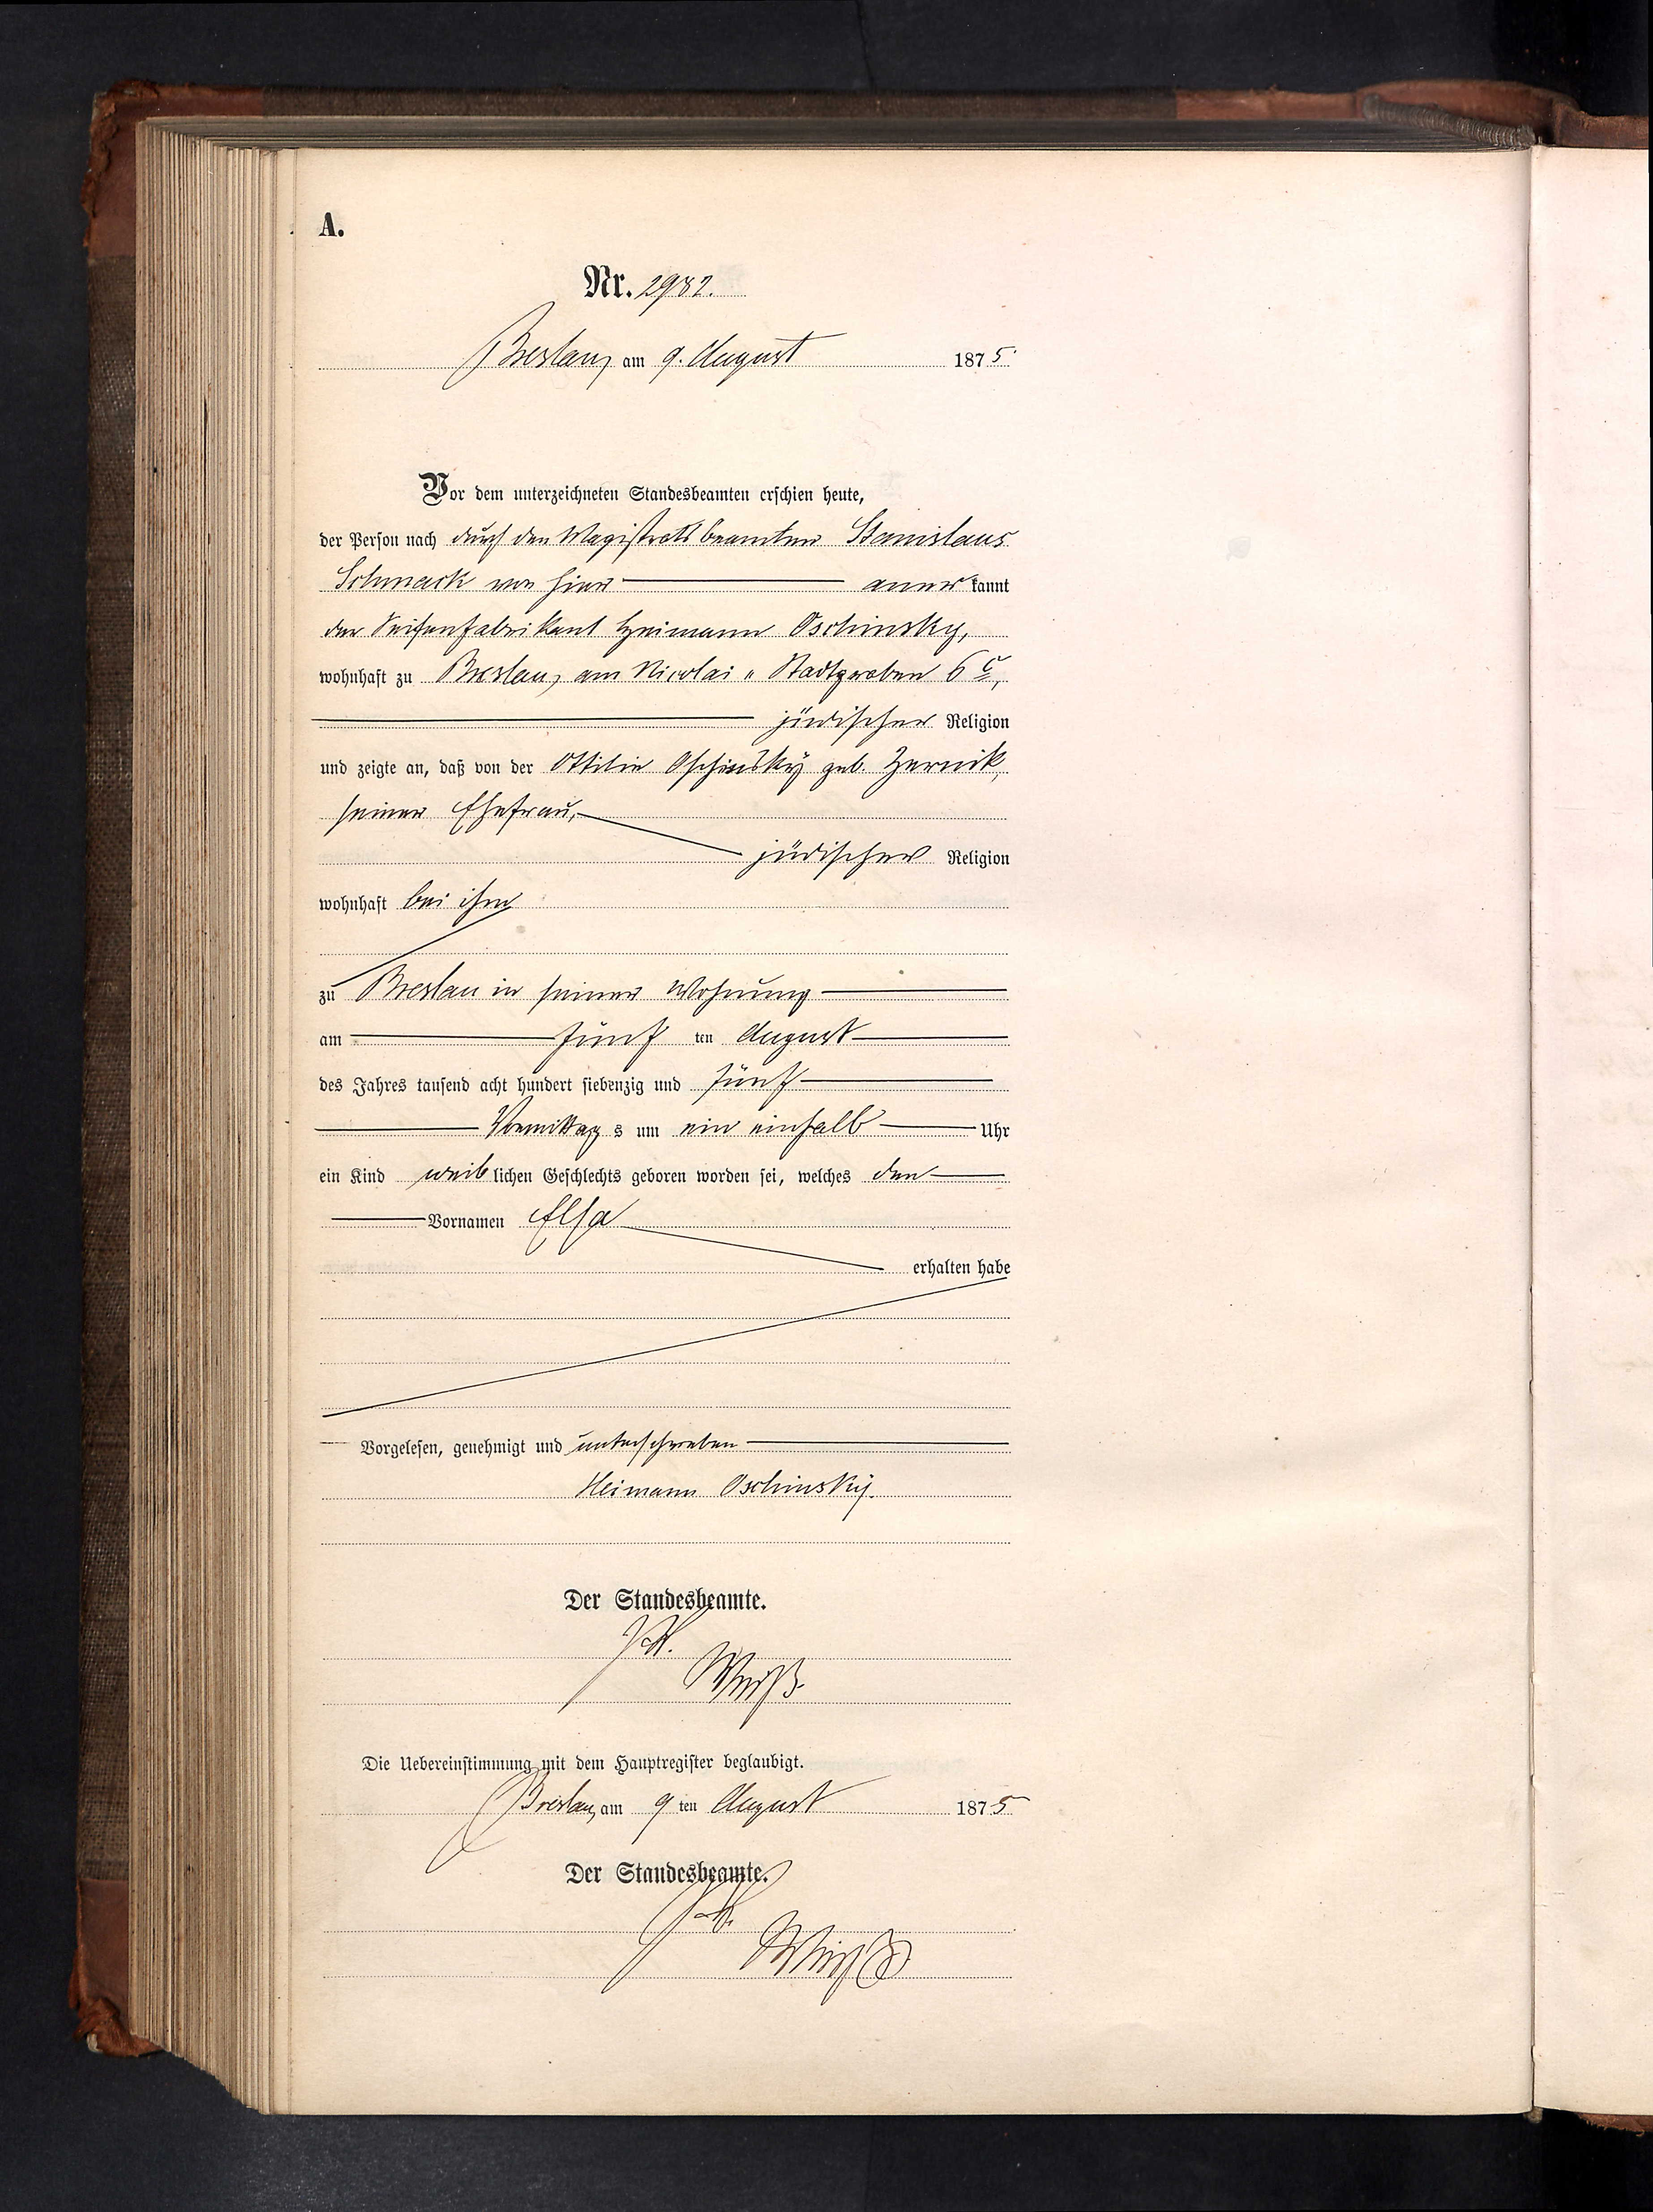 A.
Nr. 2982.
Breslau, am 9. August 1875.
Vor dem unterzeichneten Standesbeamten erschien heute,
der Person nach durch den Magistratsbeamten Stanislaus
Schmack von hier aner kannt
der Seifenfabrikant Heimann Oschinsky,
wohnhaft zu Breslau, am Nicolai " Stadtgraben 6 c,
jüdischer Religion
und zeigte an, daß von der Ottilie Oschinsky geb. Zernik,
seiner Ehefrau,
jüdischer Religion
wohnhaft bei ihm
zu Breslau in seiner Wohnung
am fünf ten August
des Jahres tausend acht hundert siebenzig und fünf
Vormittag s um ein einhalb Uhr
ein Kind weib lichen Geschlechts geboren worden sei, welches den
Vornamen Elsa
erhalten habe
Vorgelesen, genehmigt und unterschrieben
Heimann Oschinsky.
Der Standesbeamte.
Weiß
Die Uebereinstimmung mit dem Hauptregister beglaubigt.
Breslau, am 9 ten August 1875
Der Standesbeamte.
Weiß